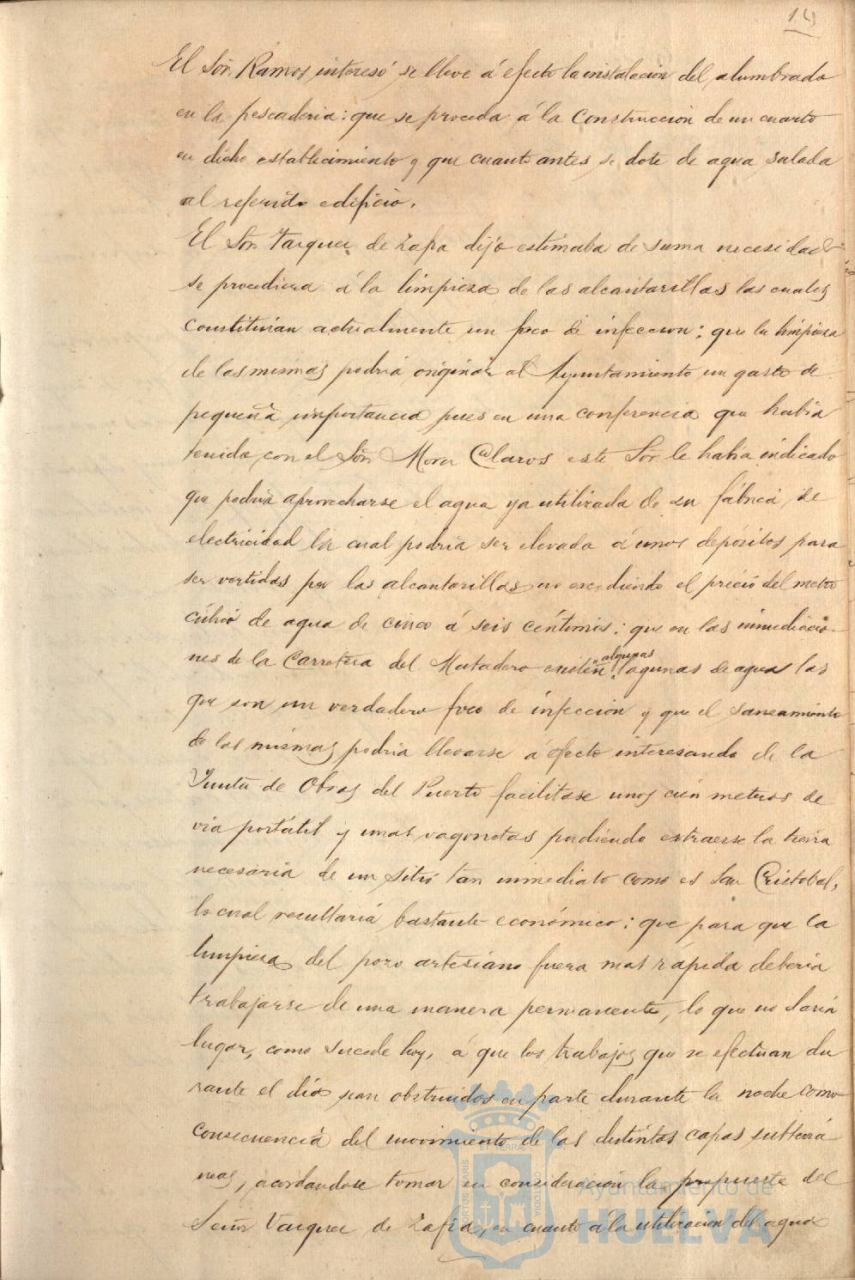 14
El Sor. Ramos interesó se lleve á efecto la instalacion del alumbrado
en la pescaderia: que se proceda á la Construccion de un cuarto
en dicho establecimiento y que cuanto antes se dote de agua salada
al referido edificio.
El Sor. Vazquez de Zafra dijo estimaba de suma necesidad
se procediera á la limpieza de las alcantarillas las cuales
constituian actualmente un foco de infeccion: que la limpieza
de las mismas podria originar al Ayuntamiento un gasto de
pequeña importancia pues en una conferencia que habia
tenido con el Sor. Mora Claros este Sor le habia indicado
que podria aprovecharse el agua ya utilizada de su fábrica de
electricidad la cual podria ser elevada á unos depósitos para
ser vertidas por las alcantarillas no excediendo el precio del metro
cúbico de agua de cinco á seis céntimos: que en las inmediacio-
nes de la Carretera del Matadero existen algunas lagunas de agua las
que son un verdadero foco de infeccion y que el saneamiento
de las mismas podria llevarse a efecto interesando de la
Junta de Obras del Puerto facilitase unos cien metros de
via portátil y unas vagonetas pudiendo extraerse la tierra
necesaria de un sitio tan inmediato como es San Cristobal,
lo cual resultaria bastante económico: que para que la
limpieza del pozo artesiano fuera mas rápida deberia
trabajarse de una manera permanente, lo que no daria
lugar, como sucede hoy, á que los trabajos que se efectuan du
rante el dia sean obstruidos en parte durante la noche como
consecuencia del movimiento de las distintas capas subterrá
neas, acordandose tomar en consideración la propuesta del
Señor Vazquez de Zafra, en cuanto á la utilizacion del agua
Ayuntamiento de
HUELVA